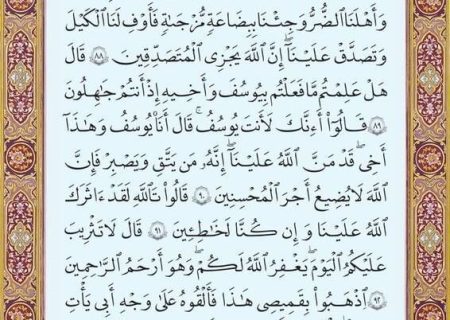 وَأَهْلَنَا ٱلضُّرُّ وَجِئْنَا بِبِضَٰعَةٍ مُّزْجَىٰةٍ فَأَوْفِ لَنَا ٱلْكَيْلَ
وَتَصَدَّقْ عَلَيْنَآ ۖ إِنَّ ٱللَّهَ يَجْزِى ٱلْمُتَصَدِّقِينَ ٨٨ قَالَ
هَلْ عَلِمْتُم مَّا فَعَلْتُم بِيُوسُفَ وَأَخِيهِ إِذْ أَنتُمْ جَٰهِلُونَ
٨٩ قَالُوٓا۟ أَءِنَّكَ لَأَنتَ يُوسُفُ ۖ قَالَ أَنَا۠ يُوسُفُ وَهَٰذَآ
أَخِى ۖ قَدْ مَنَّ ٱللَّهُ عَلَيْنَآ ۖ إِنَّهُۥ مَن يَتَّقِ وَيَصْبِرْ فَإِنَّ
ٱللَّهَ لَا يُضِيعُ أَجْرَ ٱلْمُحْسِنِينَ ٩٠ قَالُوا۟ تَٱللَّهِ لَقَدْ ءَاثَرَكَ
ٱللَّهُ عَلَيْنَا وَإِن كُنَّا لَخَٰطِـِٔينَ ٩١ قَالَ لَا تَثْرِيبَ
عَلَيْكُمُ ٱلْيَوْمَ ۖ يَغْفِرُ ٱللَّهُ لَكُمْ ۖ وَهُوَ أَرْحَمُ ٱلرَّٰحِمِينَ
٩٢ ٱذْهَبُوا۟ بِقَمِيصِى هَٰذَا فَأَلْقُوهُ عَلَىٰ وَجْهِ أَبِى يَأْتِ